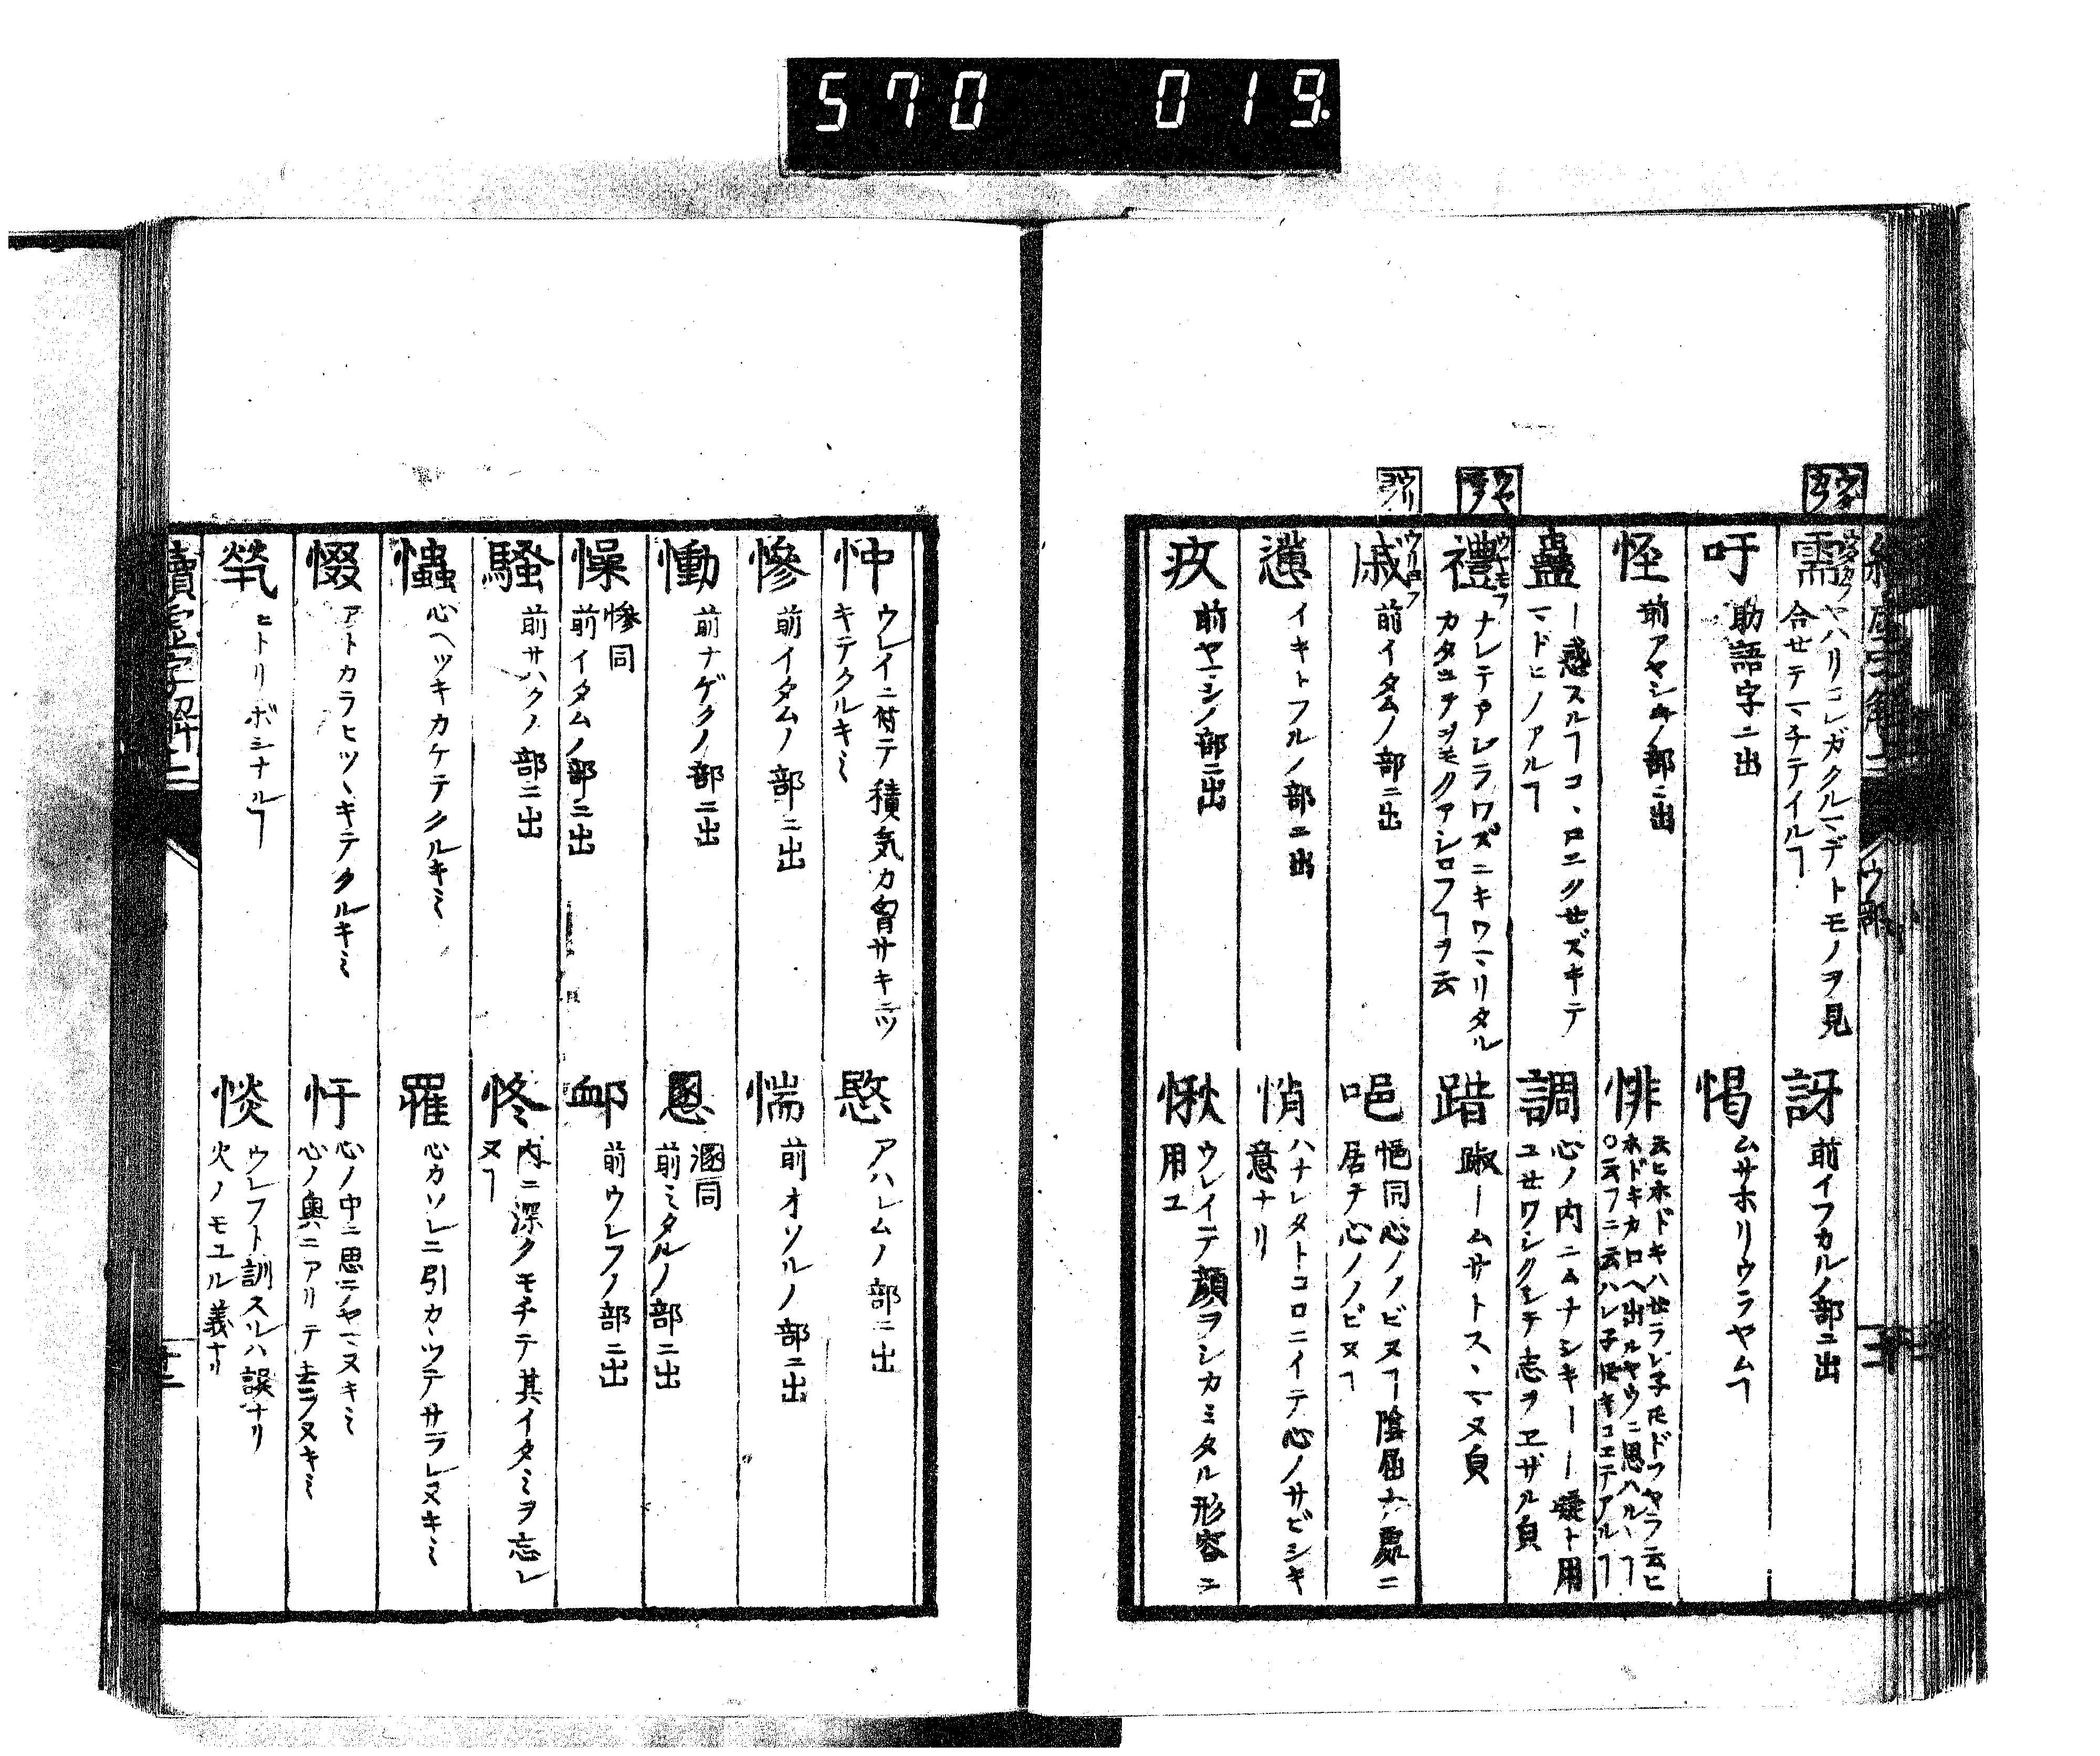 570 019
需
ヤハリコレガクルマデトモノヲ見
合セテマチテイルヿ
訝
前イフカルノ部ニ出
吁
助語字ニ出
愒
ムサホリウラヤムヿ
怪
前アヤシムノ部ニ出
悱
蠱
ー惑スルヿコヽロニクせズキテ
マドヒノアルヿ
調
心ノ内ニムナシキーー疑ト用
ユせワシクシテ志ヲヱザル貟
禮
ナレテアレラワズニキワマリタル
カタヨヲヲモクアシロフヿヲ云
踖
踧ームサトスヽマヌ貟
慼
前イタムノ部ニ出
唈
悒同心ノノビヌヿ陰屈ナル處ニ
居テ心ノノビヌヿ
イキトフルノ部ニ出
悄
ハナレタトコロニイテ心ノサビシキ
意ナリ
疚
前ヤマシノ部ニ出
愀
ウレイテ顔ヲシカミタル形容ニ
用ユ
忡
ウレイニ付テ積気カ胷サキニツ
キテクルキミ
愍
アハレムノ部ニ出
慘
前イタムノ部ニ出
惴
前オソルノ部ニ出
慟
前ナゲクノ部ニ出
慁
溷同
前ミタルノ部ニ出
懆
慘同
前イタムノ部ニ出
卹
前ウレフノ部ニ出
騷
前サハクノ部ニ出
佟
内ニ深クモチテ其イタミヲ忘レ
ヌヿ
心ヘツキカケテクルキミ
罹
心カソレニ引カヽツテサラレヌキミ
惙
アトカラヒツヽキテクルキミ
忓
心ノ中ニ思ニヤマヌキミ
心ノ奥ニアリテ去ラヌキミ
煢
ヒトリボシナルヿ
惔
ウレフト訓スルハ誤ナリ
火ノモユル義ナリ
續虚字解二